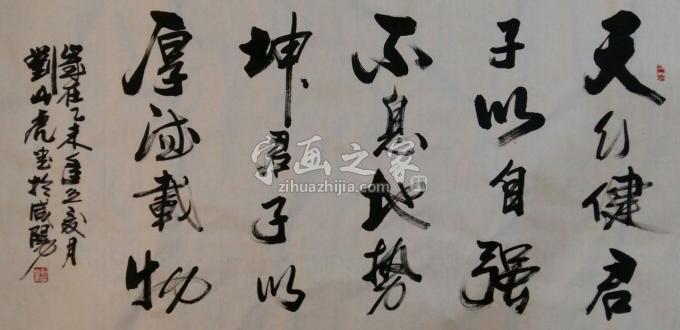 天行健君
子以自强
不息地势
坤君子以
厚德载物
岁在乙未年立夏月
刘山虎书于咸阳
字画之家
zihuazhijia.com